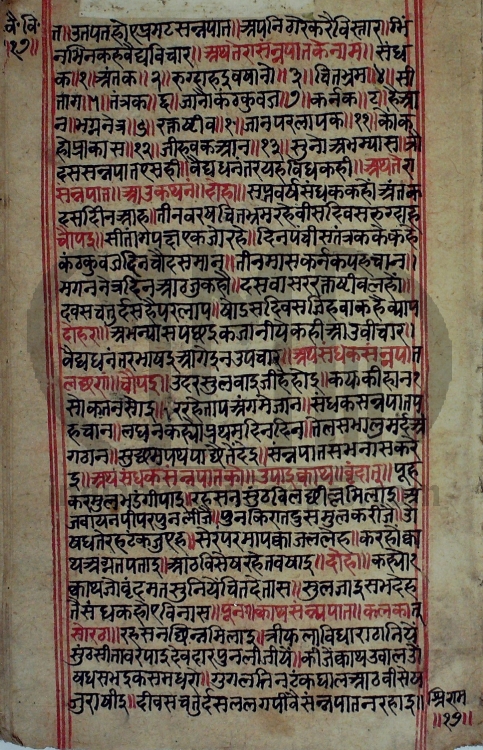 वै॰ वि॰
॥१७॥
त॥ उतपतहोएप्रगटसन्नपात॥ अपनिगरकरैविस्तार॥ भिं
नभिनकहवैद्यविचार॥ अथतेरासन्नपातकेनाम॥ संधि
क॥१॥ अंतक॥२॥ रुग्दाह ॥३॥ चितभ्रम॥४॥ सी
तांग॥५॥ तंत्रक॥६॥ जानोकंठकुवज॥७॥ कर्नक॥८॥
न॥ भगननेत्र॥९॥ रक्तष्टीव॥१०॥ जानपरलापक॥११॥ कोक
हीप्राकास॥१२॥ जीहवकआंन॥१३॥ सुनोअभन्यास॥
दससन्नपातएसही॥ वैद्यधनंतरयहविधकही॥ अथतेरा
सन्नपात॥ आउकथन॥ दोहा॥ सप्तवर्षसंधककही अंतक
दसदिनआह॥ तीनवरषचितभ्रमरहेवीसदिवसरुगदाह
चौपइ॥ सीतांगपछएकजोरहे॥ दिनपचीसतंत्रककैकहै
कंठकुवजदिनचौदसमान॥ तीनमासकर्नकपहचान॥
भगननेत्रदिनआठजुकही॥ दसवासररक्तष्टीवलही॥
दिवसचतुर्दसहैपरलाप॥ षोडसदिवसजिहवाकहैव्याप
दोहरा॥ अभन्यासपछइकजानीयकहीआउवीचार॥
वैद्यधनंतरभाषइआगेसुनउपचार॥ अथसंधकसन्नपात
लछण॥ चौपइ॥ उदरसुलवाइजीहहोइ॥ कफकीहान
सोकतनसोइ॥ रहेतापअंगमेजान॥ संधकसन्नपातप
हचान॥ लघनकह्योप्रथमदिनतिन॥ तेलसभालुमर्दअं
गठान॥ मुछमपथपाछेतेदेइ॥ सन्नपातसभनासकरे
इ॥ अथसंधकसन्नपातका॥ उपाइक्काथ॥
करमुलभडंगीपाइ॥ रहसनसुंठविलछीलमिलाइ॥
जवायनपीपरपुनलीजै॥ पुनकिरातदसमुलकरीजै॥
षधतेरहटंकजुएह॥ सेरपरमापकाजललेह॥ करहोका
यअग्नतपताइ॥ आठविसेषरहेतवषाइ॥ दोहा॥ कह्यो
काथजोवृंदमतसुनियेचितदेतास॥ सुलजाइसभदेह
तेसंधकहोएविनास॥ पुनः॥ काथसंन्नपात॥
सोरठा॥ रहसनछिन्नमिलाइ॥ त्रीफलाविधारागनियें
सुंठसीतावरपाइदेवदारपुनलीजीयें॥ कीजेकाथउवालऔ
षधसभइकसमधरो॥ गुगलतिनटंकघालआठवीसेष
जुराषीइ॥ दीवसचतुर्दसललगपीवैसंन्नपातनरहाइ॥
श्रिराम
॥१७॥